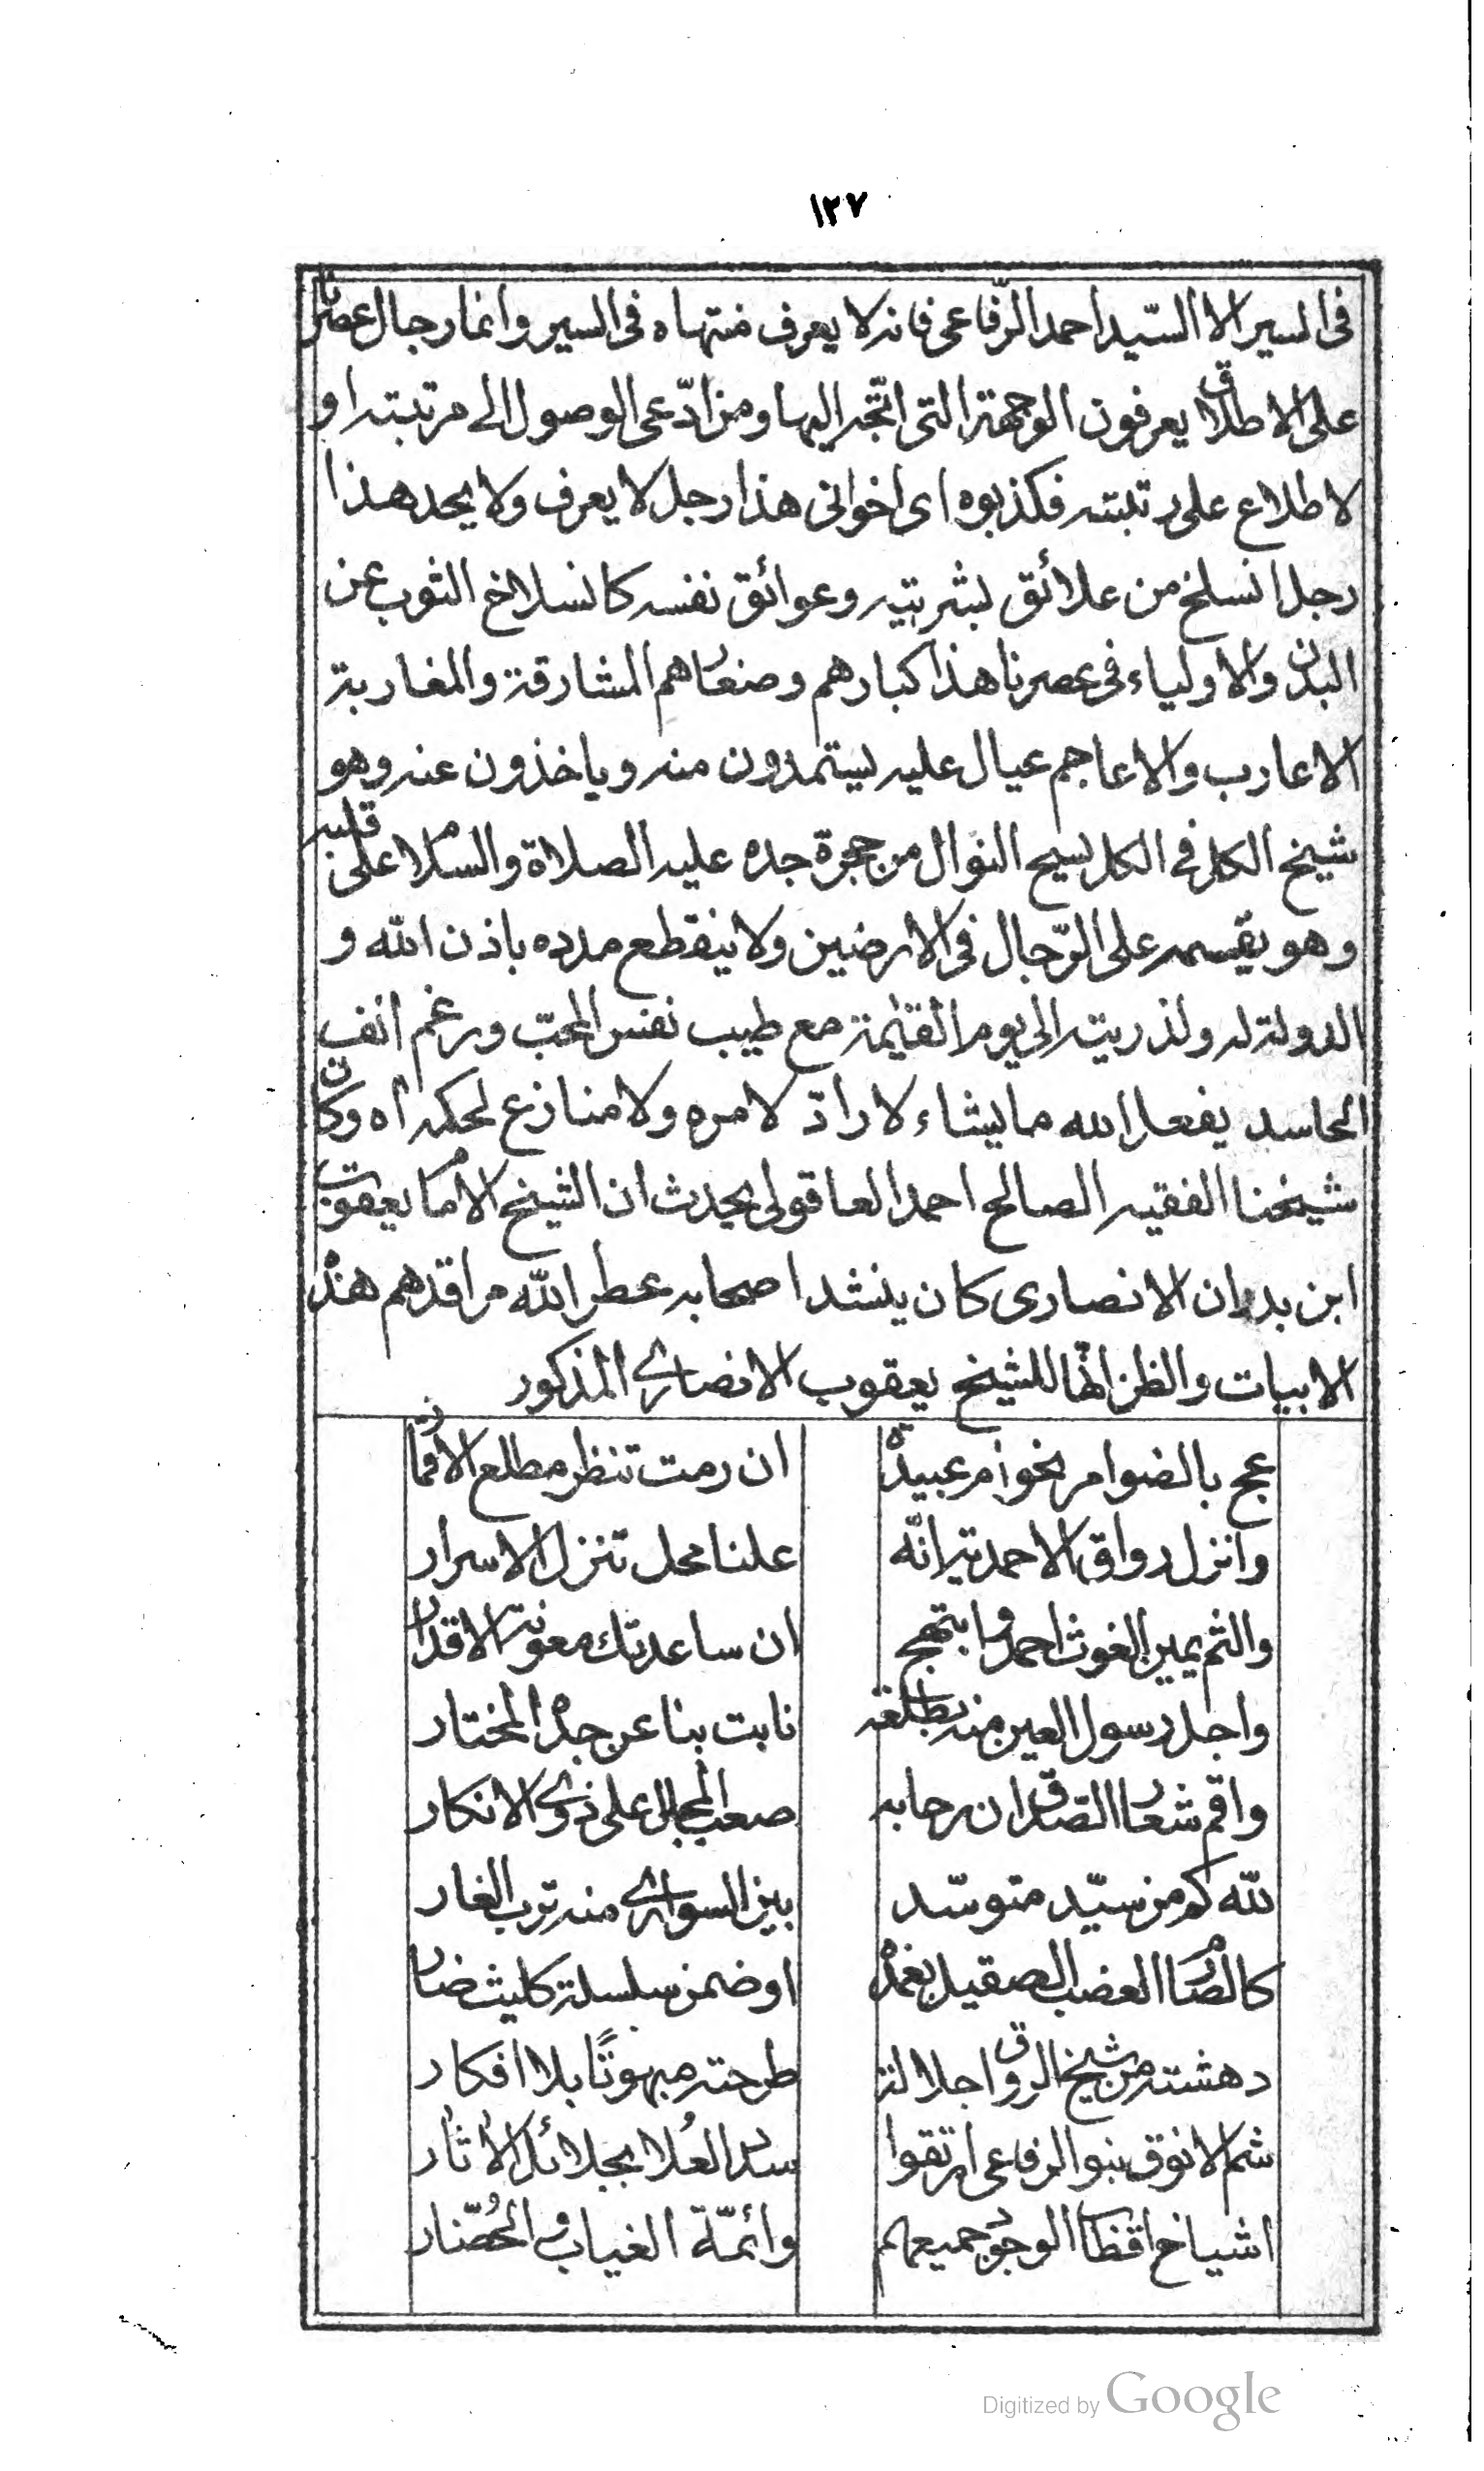 ١٢٧
فى السير الا السّيد احمد الرّفاعى فانه لا يعرف منتهاه فى السير وانما رجال عصرنا
على الاطلاق يعرفون الوجهة التى اتّجه اليها ومن ادّعى الوصول الى مرتبته او
لاطلاع على رتبته فكذبوه اى اخوانى هذا رجل لا يعرف ولا يحد هذا
رجل انسلخ من علائق بشريته وعوائق نفسه كانسلاخ الثوب عن
البدن والاولياء فى عصرنا هذا كبارهم وصغارهم المشارقة والمغاربة
الاعارب والاعاجم عيال عليه يستمدون منه وياخذون عنه وهو
شيخ الكل فى الكل يسيح النوال من حجرة جده عليه الصلاة والسلام على قلبه
وهو يقسمه على الرّجال فى الارضين ولا ينقطع مدده باذن الله و
الدولة له ولذريته الى يوم القيٰمة مع طيب نفس المحب ورغم انف
الحاسد يفعل الله ما يشاء لا رادّ لامره ولا منازع لحكمه اه وكان
شيخنا الفقيه الصالح احمد العاقولى يحدث ان الشيخ الامام يعقوب
ابن بدران الانصارى كان ينشد اصحابه عطر الله مراقدهم هذه
الابيات والظن انّها للشيخ يعقوب الانصارى المذكور
عج بالضوامر نحو ام عبيدة ان رمت تنظر مطلع الاقمار
وانزل رواق الاحمدية انّه علنا محل تنزل الاسرار
والثم يمين الغوث احمد وابتهج ان ساعدتك معونة الاقدار
واجل رسول العين منه بطلعة نابت بنا عن جده المختار
واقم شعار الصدق ان رحابه صعب المجال على ذوى الانكار
لله كم من سيّد متوسّد بين السوارى منه ترب الغار
كالصارم العضب الصقيل بغمده او ضمن سلسلة كليث ضار
دهشته من شيخ الرواق جلالة طرحته مبهوتًا بلا افكار
شم الانوف بنو الرفاعى ارتقوا سدد العُلا بجلائل الاثار
اشياخ اقطاب الوجود جميعهم وائمّة الغياب والحُضّار
Digitized by Google